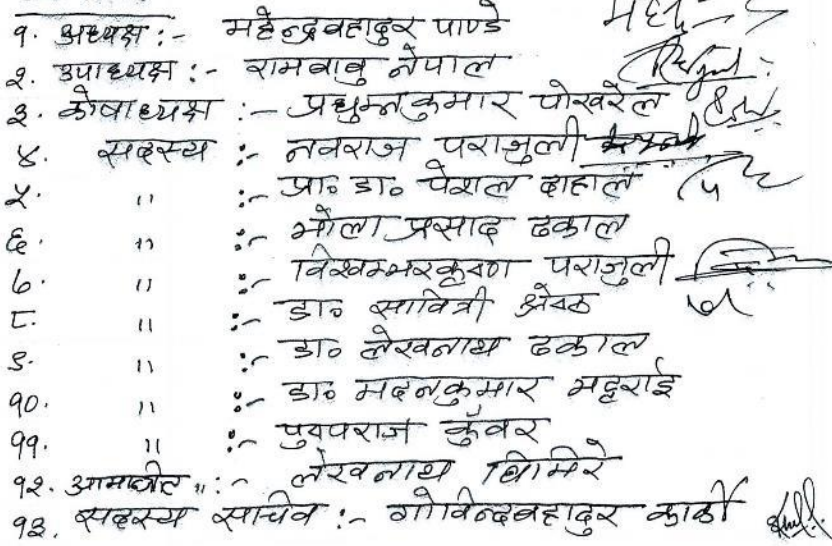 १. अध्यक्ष :- महेन्द्रबहादुर पाण्डे
२. उपाध्यक्ष :- रामबाबु नेपाल
३. कोषाध्यक्ष :- प्रद्युम्नकुमार पोखरेल
४. सदस्य :- नवराज पराजुली
५. " :- प्रा० डा० पेशल दाहाल
६. " :- भोला प्रसाद ढकाल
७. " :- विश्वम्भरकृष्ण पराजुली
८. " :- डा० सावित्री श्रेष्ठ
९. " :- डा० लेखनाथ ढकाल
१०. " :- डा० मदनकुमार भट्टराई
११. " :- पुष्पराज कुँवर
१२. आमन्त्रीत " :- लेखनाथ घिमिरे
१३. सदस्य सचिव :- गोविन्दबहादुर कार्की